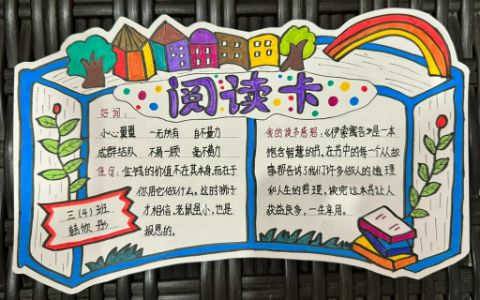 阅读卡
好词:
小心翼翼 一无所有 自不量力
成群结队 不屑一顾 毫不费力
佳句:金钱的价值不在其本身,而在于
你用它做什么。这时狮子
才相信,老鼠虽小,也是
报恩的。
三(4)班
我的读后感想:《伊索寓言》是一本
饱含智慧的书,在书中的每一个人故
事都告诉了我们许多做人的道理
和人生的哲理。读完这本书让人
获益良多,一生享用。